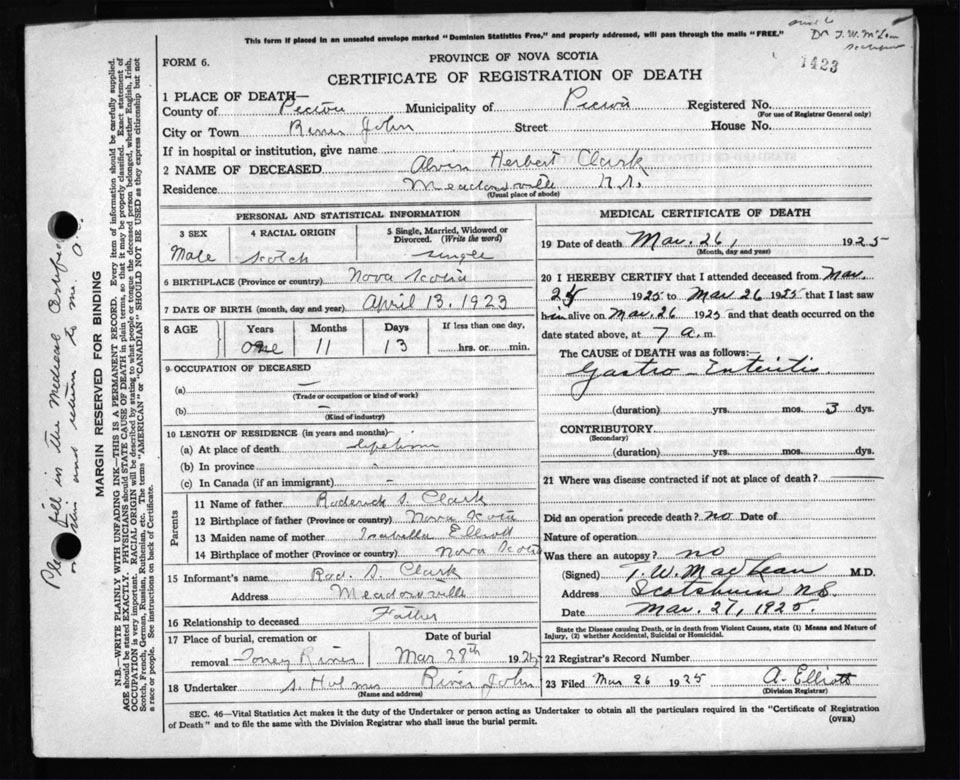 This form if placed in an unsealed envelope marked "Dominion Statistics Free," and properly addressed, will pass through the mails "FREE."
Dr T. W. M'Lean
1423
FORM 6.
PROVINCE OF NOVA SCOTIA
CERTIFICATE OF REGISTRATION OF DEATH
1 PLACE OF DEATH—
County of Pictou Municipality of Pictou Registered No.
(For use of Registrar General only)
City or Town River John Street House No.
If in hospital or institution, give name
2 NAME OF DECEASED Alvin Herbert Clark
Residence Meadowville N.S.
(Usual place of abode)
PERSONAL AND STATISTICAL INFORMATION
3 SEX 4 RACIAL ORIGIN 5 Single, Married, Widowed or Divorced. (Write the word)
Male Scotch single
6 BIRTHPLACE (Province or country) Nova Scotia
7 DATE OF BIRTH (month, day and year) April 13, 1923
8 AGE Years Months Days If less than one day,
One 11 13 hrs. or min.
9 OCCUPATION OF DECEASED
(a) —
(Trade or occupation or kind of work)
(b) —
(Kind of industry)
10 LENGTH OF RESIDENCE (in years and months)—
(a) At place of death lifetime
(b) In province -
(c) In Canada (if an immigrant) -
Parents
11 Name of father Roderick S. Clark
12 Birthplace of father (Province or country) Nova Scotia
13 Maiden name of mother Isabella Elliott
14 Birthplace of mother (Province or country) Nova Scotia
15 Informant's name Rod. S. Clark
Address Meadowville
16 Relationship to deceased Father
17 Place of burial, cremation or Date of burial
removal Toney River Mar 28th 1925
18 Undertaker S. Holmes River John
(Name and address)
MEDICAL CERTIFICATE OF DEATH
19 Date of death Mar. 26, 1925
(Month, day and year)
20 I HEREBY CERTIFY that I attended deceased from Mar
25 1925 to Mar 26 1925 that I last saw
him alive on Mar. 26 1925 and that death occurred on the
date stated above, at 7 a. m.
The CAUSE of DEATH was as follows:
Gastro-Enteritis
(duration) yrs. mos. 3 dys.
CONTRIBUTORY
(Secondary)
(duration) yrs. mos. dys.
21 Where was disease contracted if not at place of death? —
Did an operation precede death? no Date of
Nature of operation
Was there an autopsy? no
(Signed) T. W. MacLean M.D.
Address Scotsburn N.S.
Date Mar. 27, 1925.
State the Disease causing Death, or in death from Violent Causes, state (1) Means and Nature of
Injury, (2) whether Accidental, Suicidal or Homicidal.
22 Registrar's Record Number
23 Filed Mar 26 1925 A. Elliott
(Division Registrar)
SEC. 46—Vital Statistics Act makes it the duty of the Undertaker or person acting as Undertaker to obtain all the particulars required in the "Certificate of Registration
of Death" and to file the same with the Division Registrar who shall issue the burial permit.
(OVER)
MARGIN RESERVED FOR BINDING
Please fill in the Medical Certificate
and return to me.
N.B.—WRITE PLAINLY WITH UNFADING INK—THIS IS A PERMANENT RECORD. Every item of information should be carefully supplied.
AGE should be stated EXACTLY. PHYSICIANS should STATE CAUSE OF DEATH in plain terms, so that it may be properly classified. Exact statement of
OCCUPATION is very important. RACIAL ORIGIN will be described by stating to what people or tongue the deceased person belonged, whether English, Irish,
Scotch, French, German, Russian, Ruthenian, etc. The terms "AMERICAN" or "CANADIAN" SHOULD NOT BE USED as they express citizenship but not
a race or people. See instructions on back of Certificate.